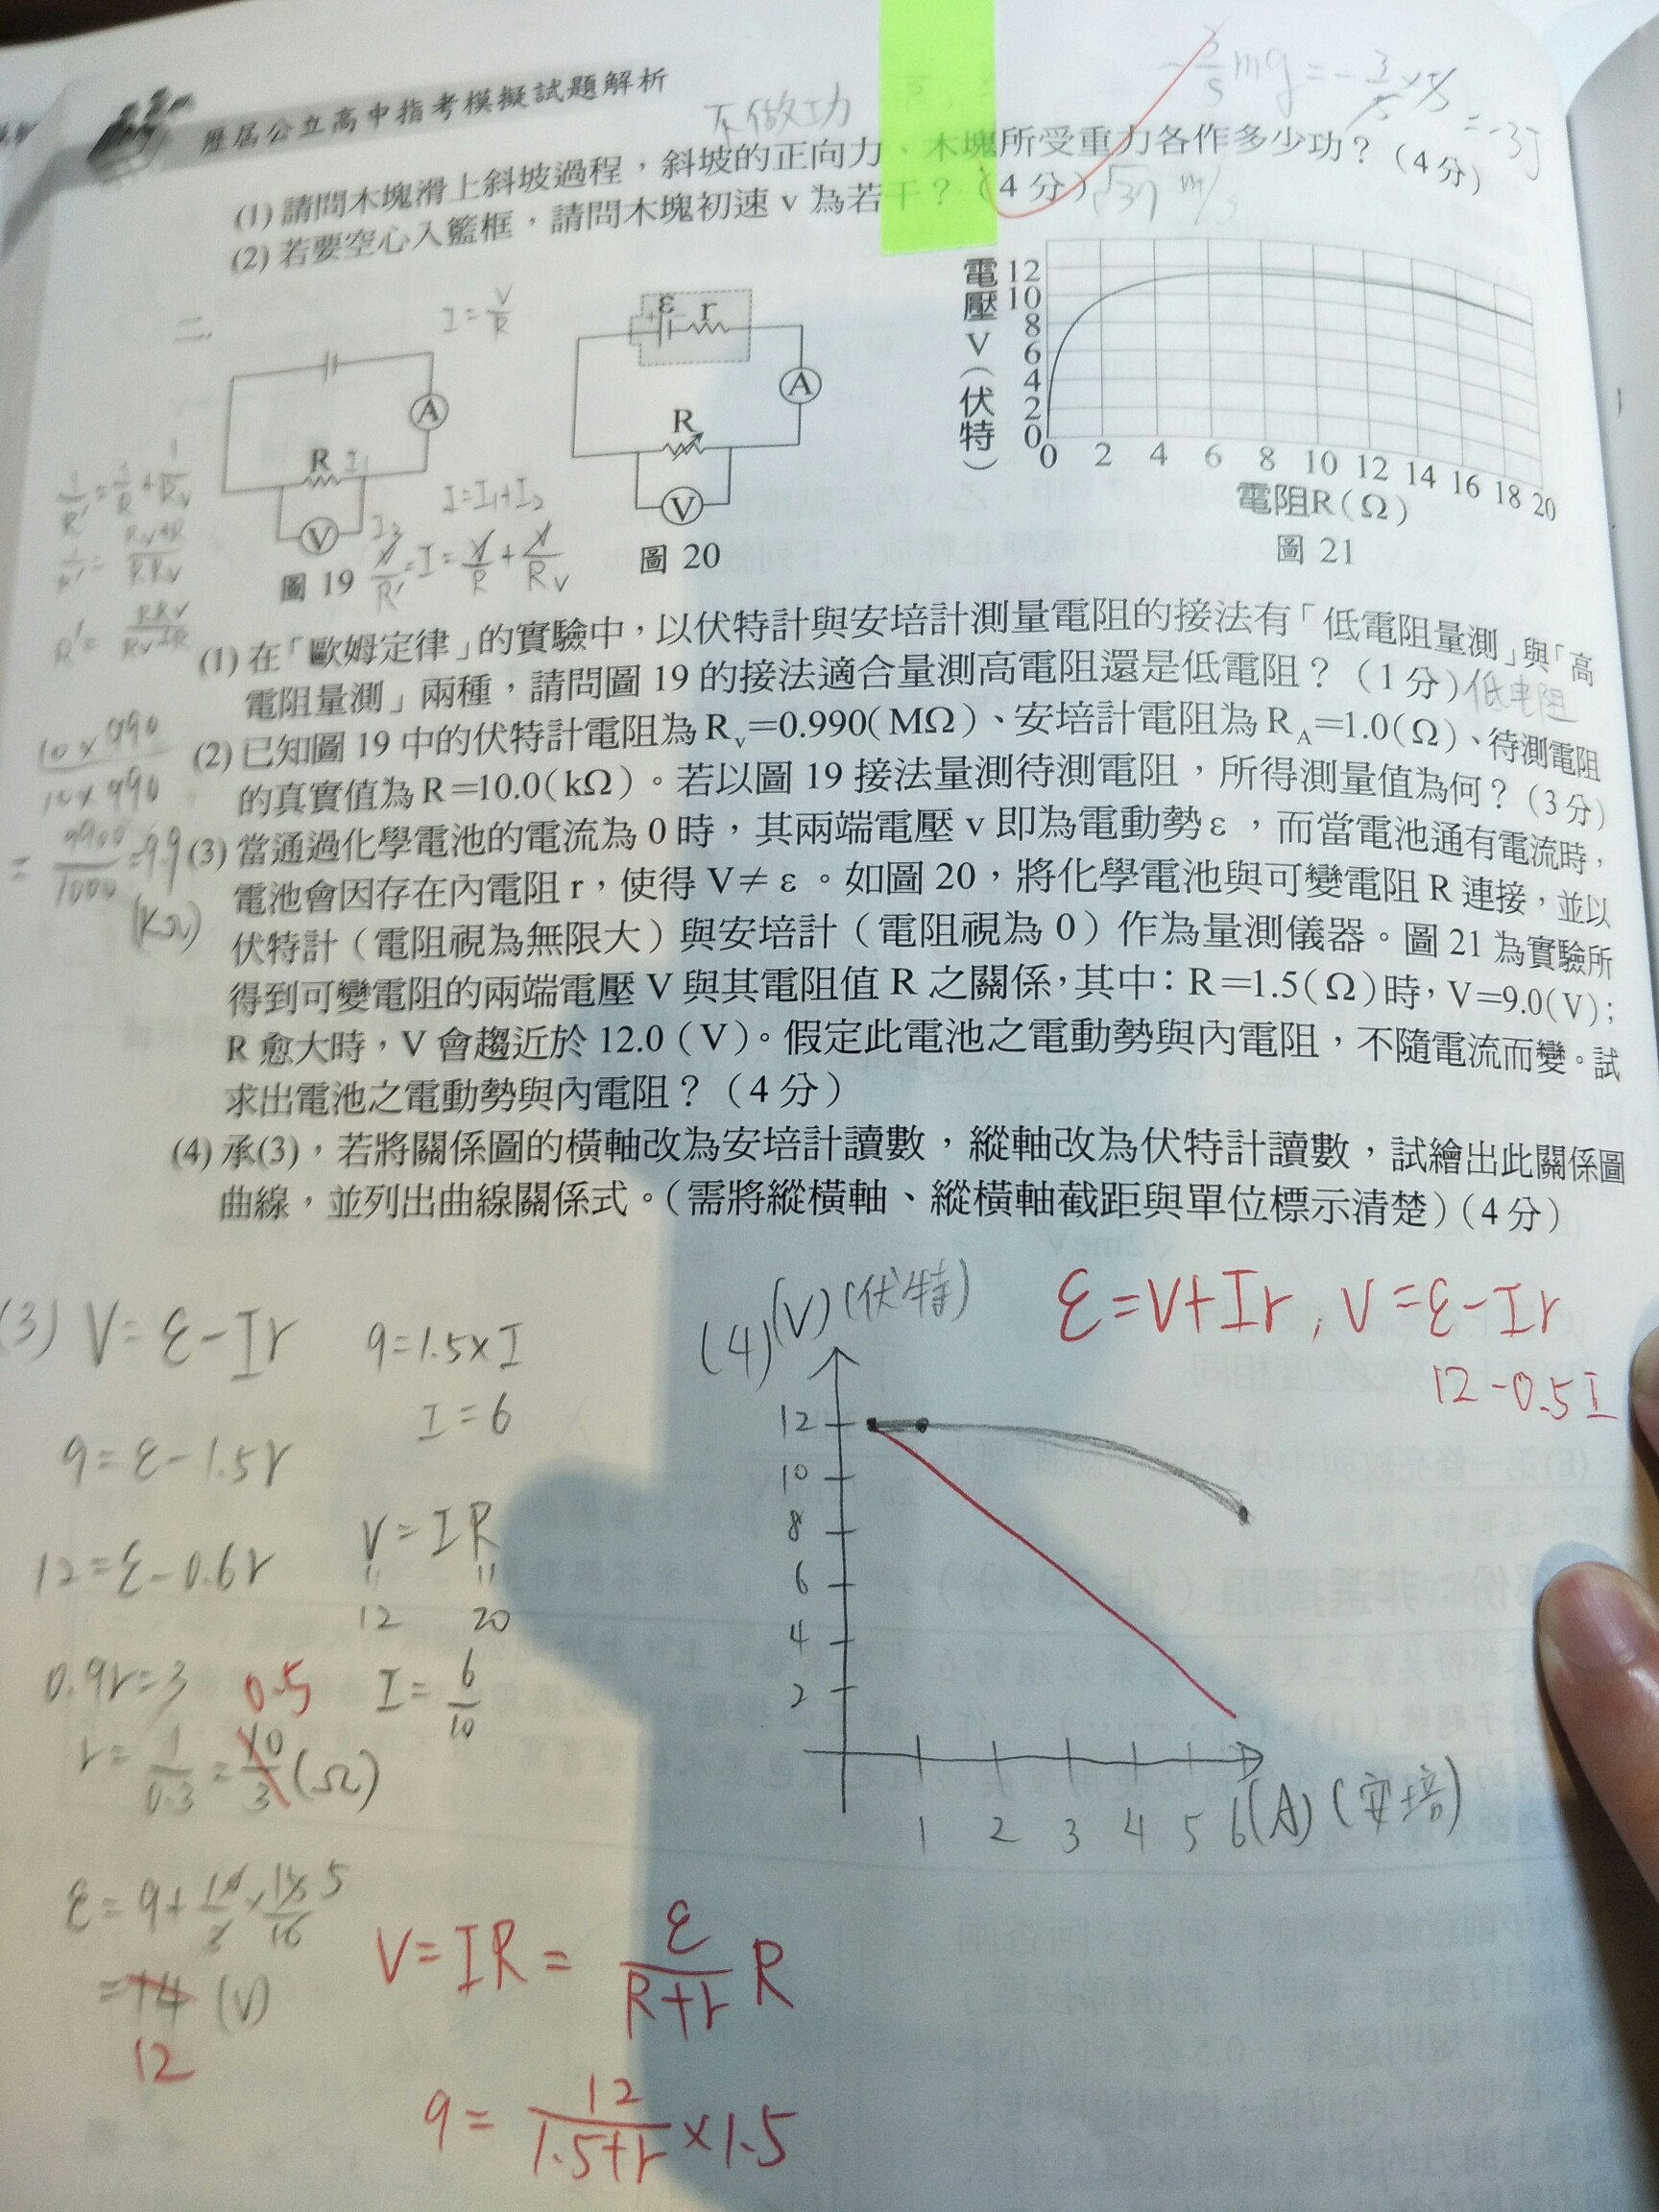 歷屆公立高中指考模擬試題解析
不做功
= -3J
(1) 請問木塊滑上斜坡過程,斜坡的正向力、木塊所受重力各作多少功?(4分)
(2) 若要空心入籃框,請問木塊初速 v 為若干?(4分)
二.
I = V/R
A
R I₁
V
I₂
圖 19
I=I₁+I₂
V/R' = I = V/R + V/Rv
ε r
A
R
V
圖 20
電壓V(伏特)
12
10
8
6
4
2
0
0 2 4 6 8 10 12 14 16 18 20
電阻R(Ω)
圖 21
1/R' = 1/R + 1/Rv
(1) 在「歐姆定律」的實驗中,以伏特計與安培計測量電阻的接法有「低電阻量測」與「高
電阻量測」兩種,請問圖 19 的接法適合量測高電阻還是低電阻?(1分)低电阻
(2) 已知圖 19 中的伏特計電阻為 Rv=0.990(MΩ)、安培計電阻為 RA=1.0(Ω)、待測電阻
的真實值為 R=10.0(kΩ)。若以圖 19 接法量測待測電阻,所得測量值為何?(3分)
= 9900/1000 = 9.9
(KΩ)
(3) 當通過化學電池的電流為 0 時,其兩端電壓 v 即為電動勢 ε,而當電池通有電流時,
電池會因存在內電阻 r,使得 V≠ε。如圖 20,將化學電池與可變電阻 R 連接,並以
伏特計(電阻視為無限大)與安培計(電阻視為 0)作為量測儀器。圖 21 為實驗所
得到可變電阻的兩端電壓 V 與其電阻值 R 之關係,其中:R=1.5(Ω)時,V=9.0(V);
R 愈大時,V 會趨近於 12.0(V)。假定此電池之電動勢與內電阻,不隨電流而變。試
求出電池之電動勢與內電阻?(4分)
(4) 承(3),若將關係圖的橫軸改為安培計讀數,縱軸改為伏特計讀數,試繪出此關係圖
曲線,並列出曲線關係式。(需將縱橫軸、縱橫軸截距與單位標示清楚)(4分)
(3) V=ε-Ir
9=1.5×I
I=6
9=ε-1.5r
V=IR
12=ε-0.6r
12 20
0.9r=3
0.5
I=6/10
r=1/0.3=10/3(Ω)
=14 (V)
12
(4) (V)(伏特)
12
10
8
6
4
2
1 2 3 4 5 6 (A)(安培)
ε=V+Ir, V=ε-Ir
12-0.5I
V=IR= ε/(R+r) R
9= 12/(1.5+r) ×1.5